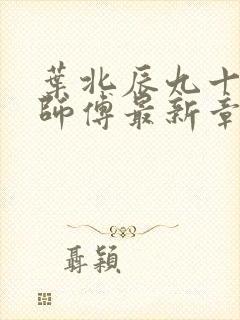 葉北辰九十
師傅最新章
聶穎